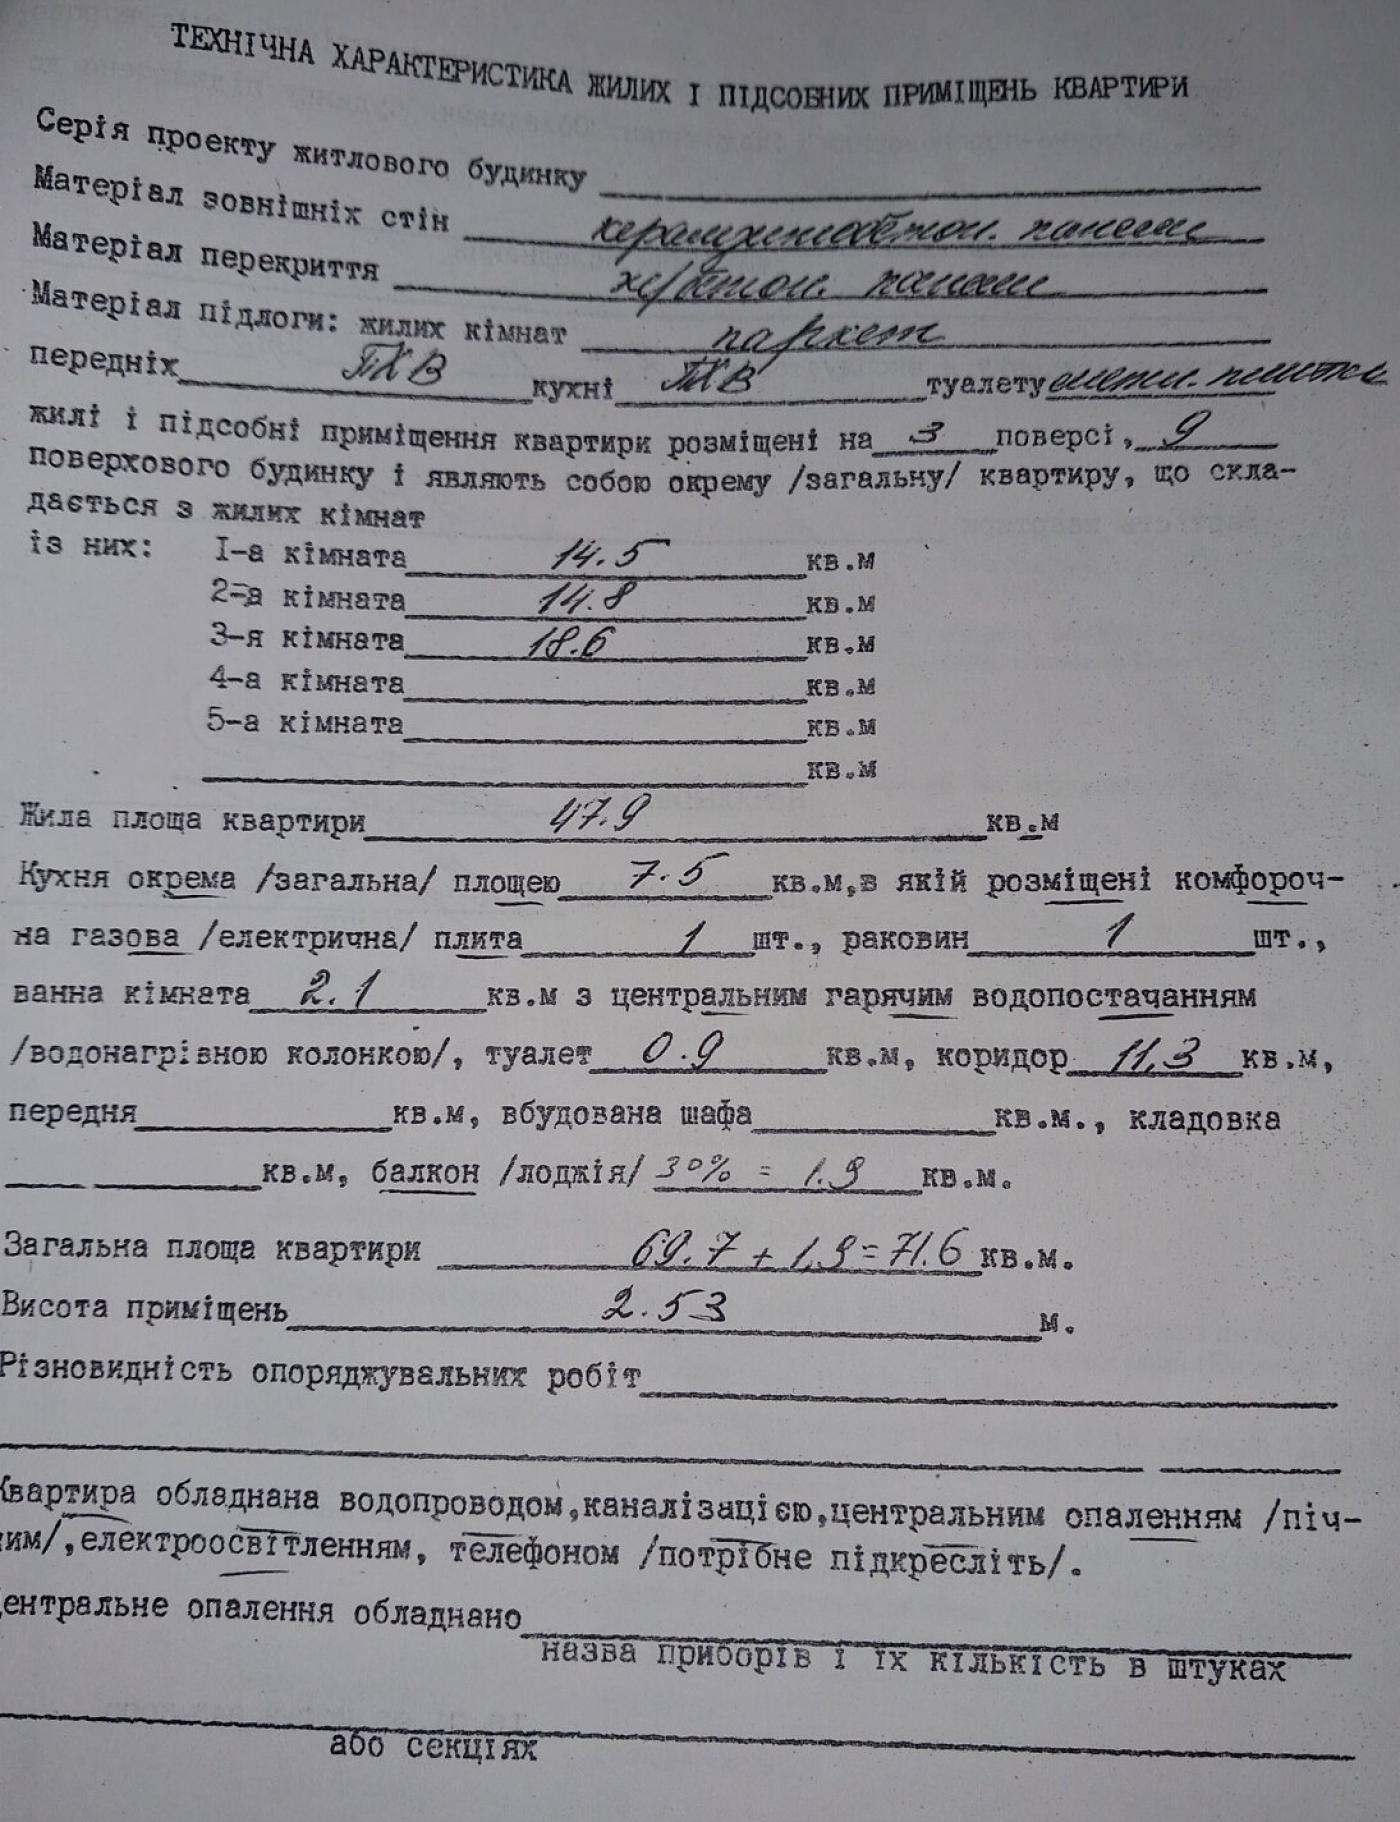 ТЕХНІЧНА ХАРАКТЕРИСТИКА ЖИЛИХ І ПІДСОБНИХ ПРИМІЩЕНЬ КВАРТИРИ
Серія проекту житлового будинку
Матеріал зовнішніх стін керамзитобетон. панелі
Матеріал перекриття ж/бетон. панелі
Матеріал підлоги: жилих кімнат паркет
передніх ПХВ кухні ПХВ туалету плитка
жилі і підсобні приміщення квартири розміщені на 3 поверсі, 9
поверхового будинку і являють собою окрему /загальну/ квартиру, що скла-
дається з жилих кімнат
із них: І-а кімната 14.5 кв.м
2-а кімната 14.8 кв.м
3-я кімната 18.6 кв.м
4-а кімната кв.м
5-а кімната кв.м
кв.м
Жила площа квартири 47.9 кв.м
Кухня окрема /загальна/ площею 7.5 кв.м,в якій розміщені комфороч-
на газова /електрична/ плита 1 шт., раковин 1 шт.,
ванна кімната 2.1 кв.м з центральним гарячим водопостачанням
/водонагрівною колонкою/, туалет 0.9 кв.м, коридор 11,3 кв.м,
передня кв.м, вбудована шафа кв.м., кладовка
кв.м, балкон /лоджія/ 30% = 1.9 кв.м.
Загальна площа квартири 69.7 + 1,9 = 71.6 кв.м.
Висота приміщень 2.53 м.
Різновидність опоряджувальних робіт
Квартира обладнана водопроводом,каналізацією,центральним опаленням /піч-
ним/,електроосвітленням, телефоном /потрібне підкресліть/.
Центральне опалення обладнано
назва приборів і їх кількість в штуках
або секціях